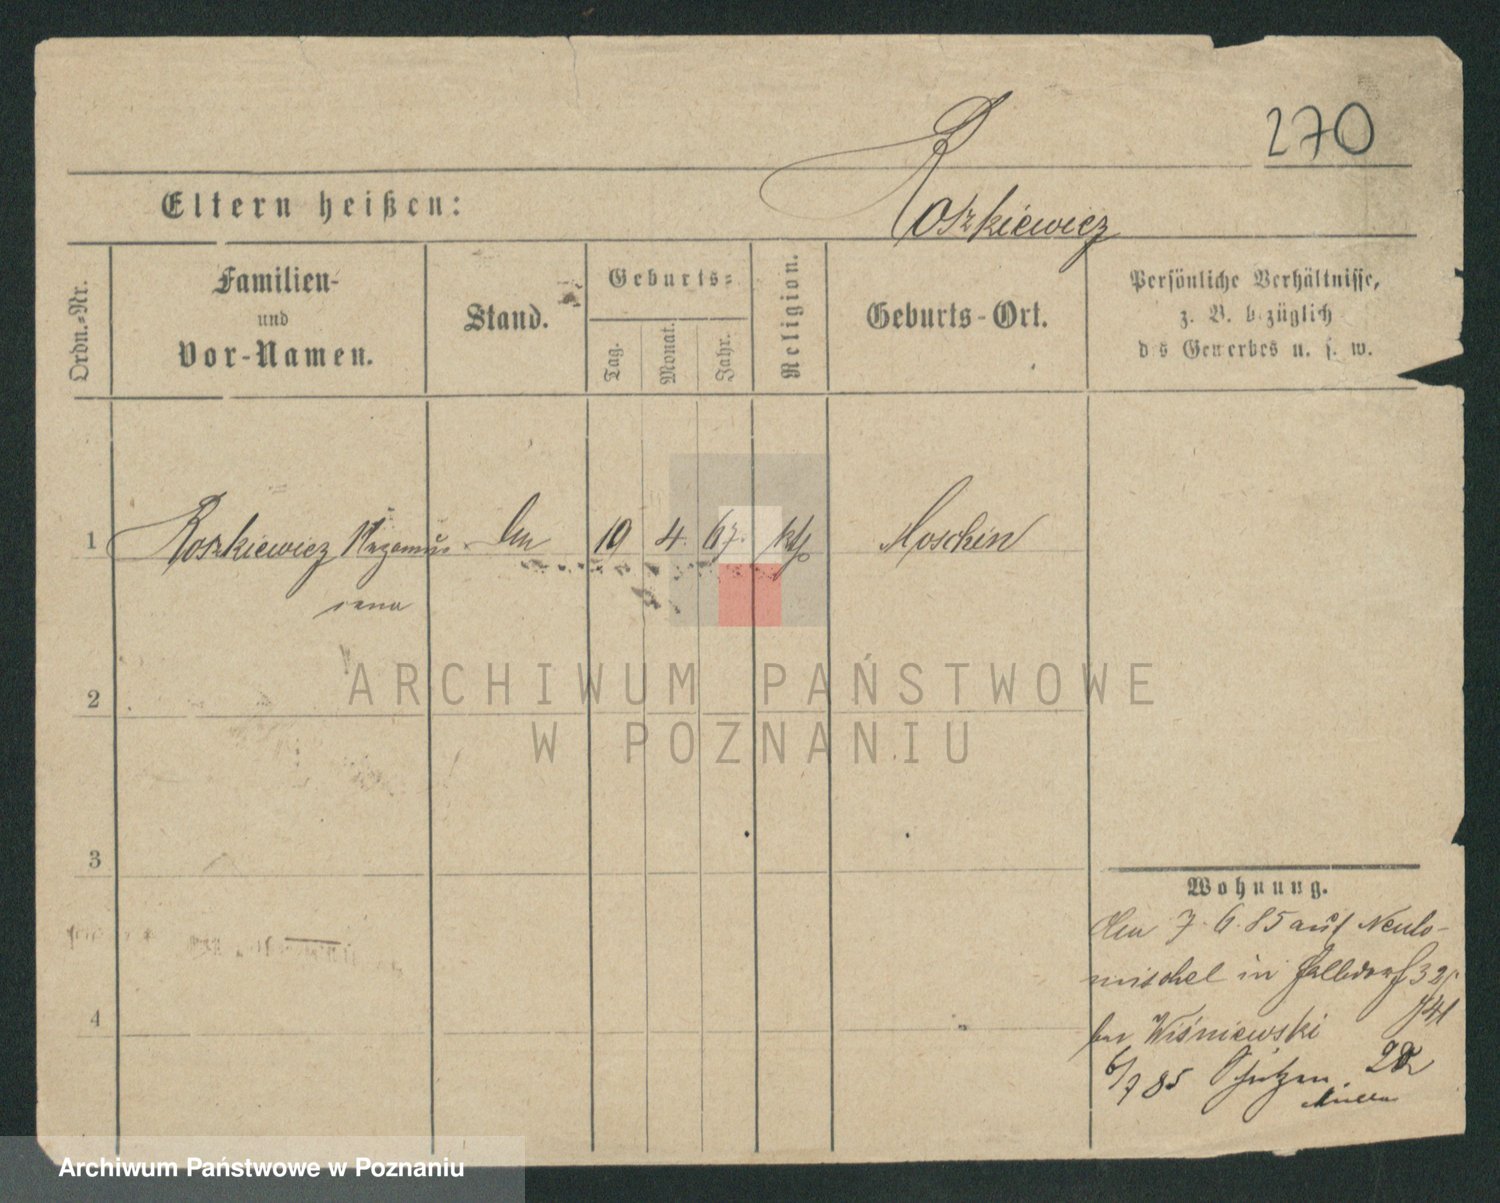 270
Eltern heißen:
Roszkiewicz
Ordn.-Nr.
Familien-
und
Vor-Namen.
Stand.
Geburts-
Tag.
Monat.
Jahr.
Religion.
Geburts-Ort.
Persönliche Verhältnisse,
z. B. bezüglich
des Gewerbes u. s. w.
1
Roszkiewicz
19 4. 67. kth
Moschin
2
3
4
Wohnung.
7. 6. 85 auf Neuto-
mischel in
Wiśniewski
6/7 85
ARCHIWUM PAŃSTWOWE
W POZNANIU
Archiwum Państwowe w Poznaniu